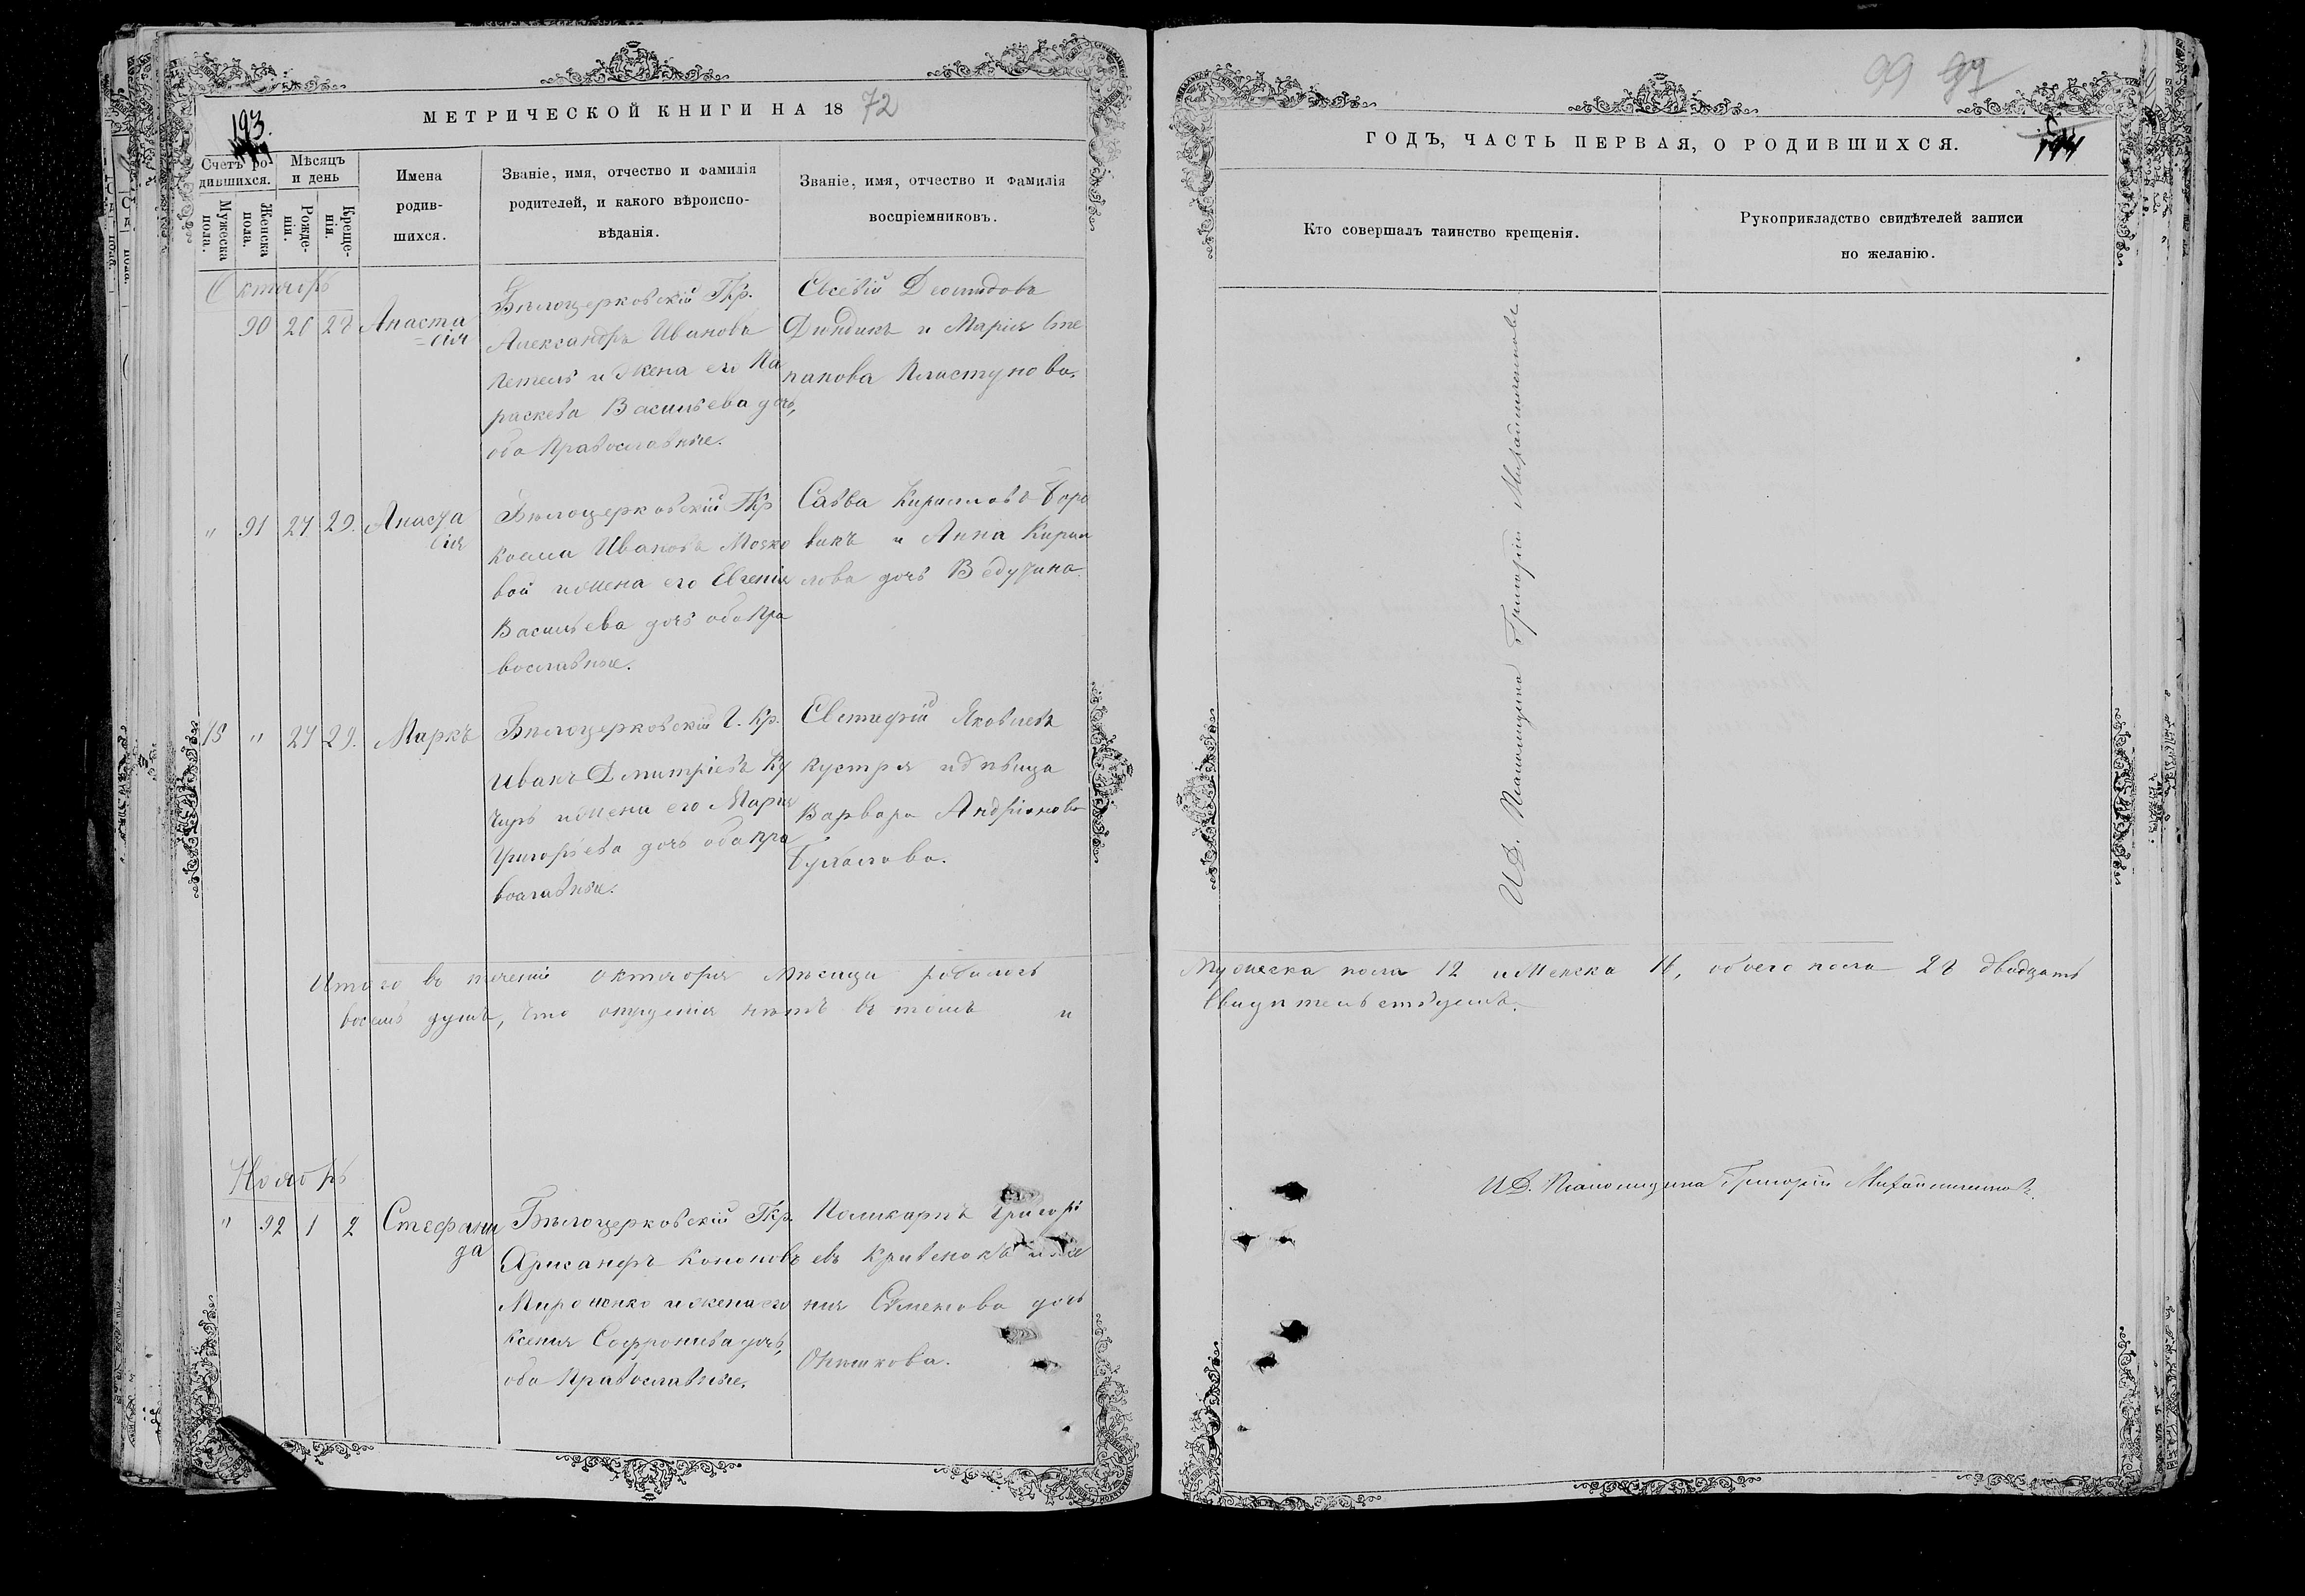 99 97
193.
194
МЕТРИЧЕСКОЙ КНИГИ НА 1872
Счетъ ро-
дившихся.
Мѣсяцъ
и день
Мужеска
пола.
Женска
пола.
Рожде-
нія.
Креще-
нія.
Имена
родив-
шихся.
Званіе, имя, отчество и фамилія
родителей, и какого вѣроиспо-
вѣданія.
Званіе, имя, отчество и фамилія
воспріемниковъ.
Октябрь
90 26 28 Анаста
=сія
Бѣлоцерковскій Гкр.
Александръ Ивановъ
и жена его Па
раскева Васильева дочь,
оба Православные.
Евсевій
и Марія Сте
панова
" 91 27 29. Анаста
сія
Бѣлоцерковскій Гкр
Косма Ивановъ Моско
вой и жена его Евгенія
Васильева дочь оба Пра
вославные.
Савва Кириловъ Боро
викъ и Анна Кирил
лова дочь
15 " 27 29. Маркъ
Бѣлоцерковскій Г. Кр.
Иванъ Дмитріевъ Ку
чиръ и жена его Марія
Григорьева дочь оба пра
вославные.
Евстафій Яковлевъ
Кустря и дѣвица
Варвара Андріянова
Итого въ теченіи Октября Мѣсяца родилось
восемь душъ, что нѣтъ въ томъ и
Ноябрь
" 92 1 2 Стефани
да
Бѣлоцерковскій Гкр.
Хрисанфъ Кононовъ
Мироненко и жена его
Ксенія Софроніева дочь,
оба Православные.
Поликарпъ Григорь
евъ и
нія Семенова дочь
ГОДЪ, ЧАСТЬ ПЕРВАЯ, О РОДИВШИХСЯ.
Кто совершалъ таинство крещенія.
Рукоприкладство свидѣтелей записи
по желанію.
И.Д. Псаломщика Григорій
Мужеска пола 12 и Женска 16, обоего пола 28 двадцать
Свидѣтельствуемъ.
И.Д. Псаломщика Григорій